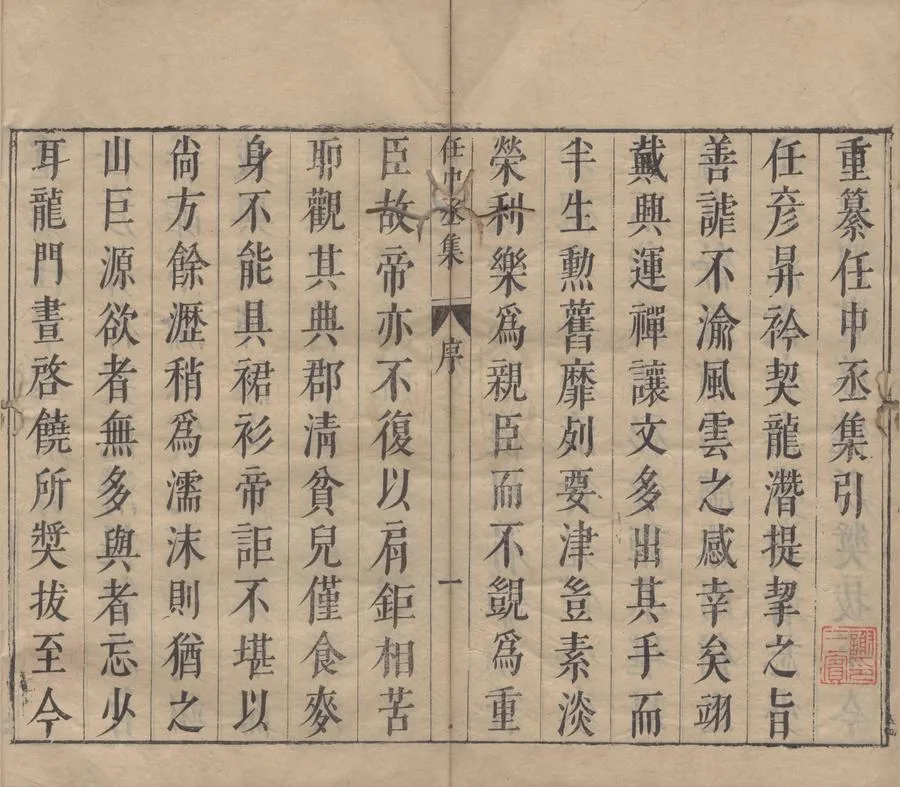 重纂任中丞集引
任彥昇衿契龍潛提挈之旨
善謔不渝風雲之感幸矣翊
戴興運禪讓文多出其手而
半生勲舊靡列要津豈素淡
榮利樂爲親臣而不覬爲重
任中丞集 序 一
臣故帝亦不復以肩鉅相苦
耶觀其典郡清貧兒僅食麥
身不能具裙衫帝詎不堪以
尙方餘瀝稍爲濡沫則猶之
山巨源欲者無多與者忘少
耳龍門晝啓饒所奬拔至今